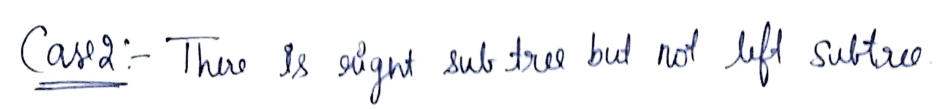 Case2:- There is right sub tree but not left subtree.